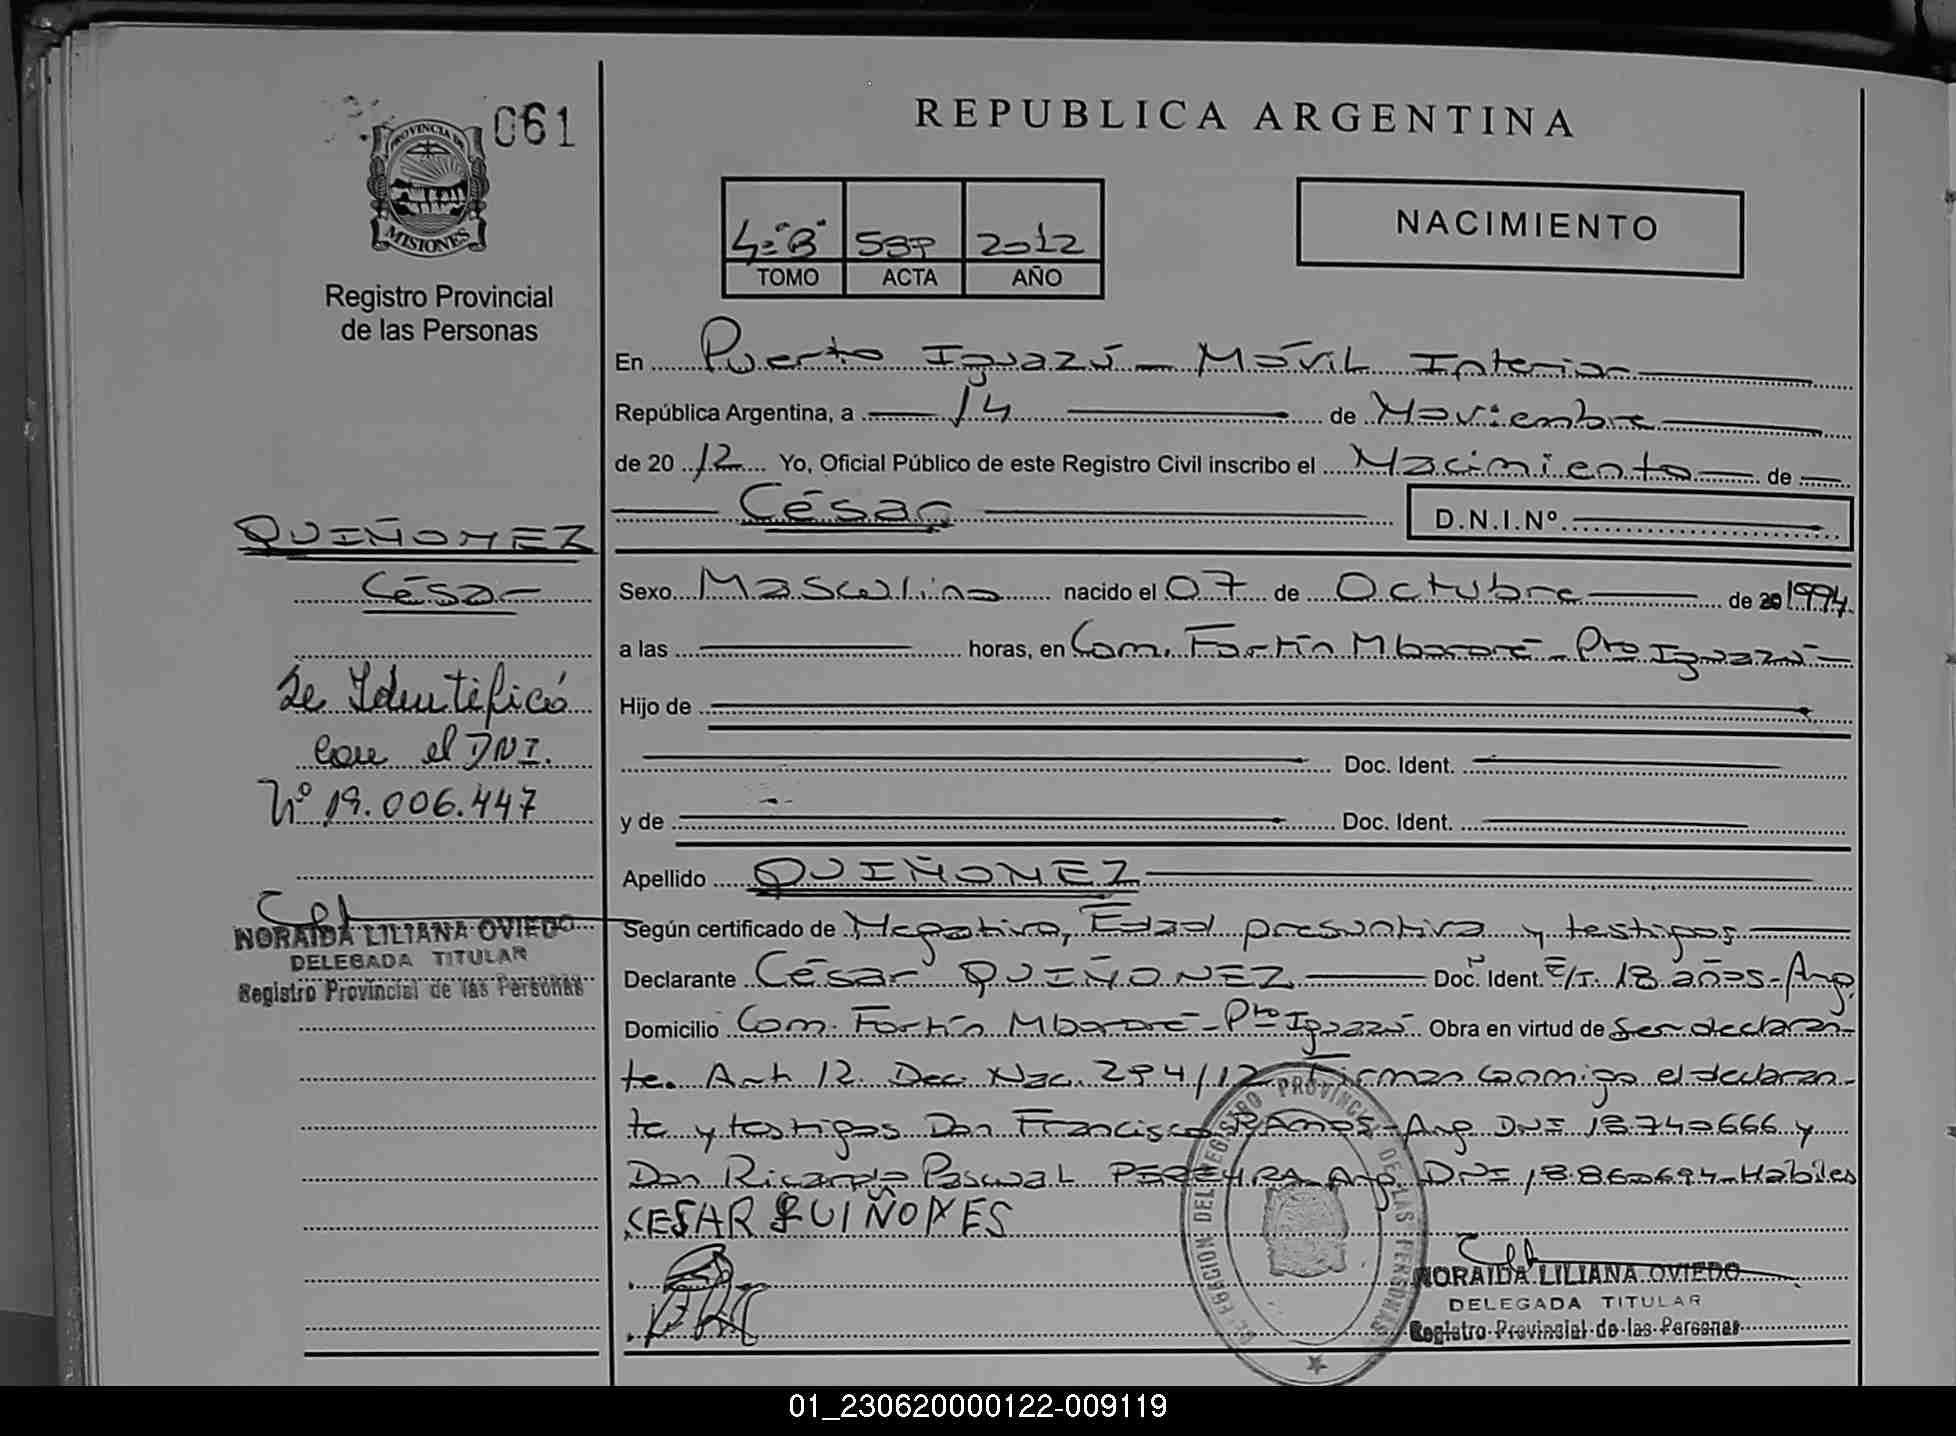 061
PROVINCIA DE
MISIONES
Registro Provincial
de las Personas
QUIÑONEZ
César
Se Identificó
con el DNI.
Nº 19.006.447
NORAIDA LILIANA OVIEDO
DELEGADA TITULAR
Registro Provincial de las Personas
REPUBLICA ARGENTINA
NACIMIENTO
4="B" 587 2012
TOMO ACTA AÑO
En Puerto Iguazú - Móvil Interior
República Argentina, a 14 de Noviembre
de 20 12 Yo, Oficial Público de este Registro Civil inscribo el Nacimiento de
César D.N.I.Nº
Sexo Masculino nacido el 07 de Octubre de 20 1994
a las horas, en Com. Fortín Mbororé - Pto Iguazú
Hijo de
Doc. Ident.
y de Doc. Ident.
Apellido QUIÑONEZ
Según certificado de Negativo, Edad presuntiva y testigos
Declarante César QUIÑONEZ Doc. Ident. E/T. 18 años - Arg.
Domicilio Com. Fortín Mbororé - Pto Iguazú Obra en virtud de ser declaran-
te. Art 12 Dec. Nac. 294/12 Firman conmigo el declaran-
te y testigos Don Francisco RAMOS - Arg. DNI 18.740666 y
Don Ricardo Pascual PEREYRA Arg. DNI 18.860694 - Hábiles
CESAR QUIÑONES
DELEGACION DEL REGISTRO PROVINCIAL DE LAS PERSONAS
NORAIDA LILIANA OVIEDO
DELEGADA TITULAR
Registro Provincial de las Personas
01_230620000122-009119